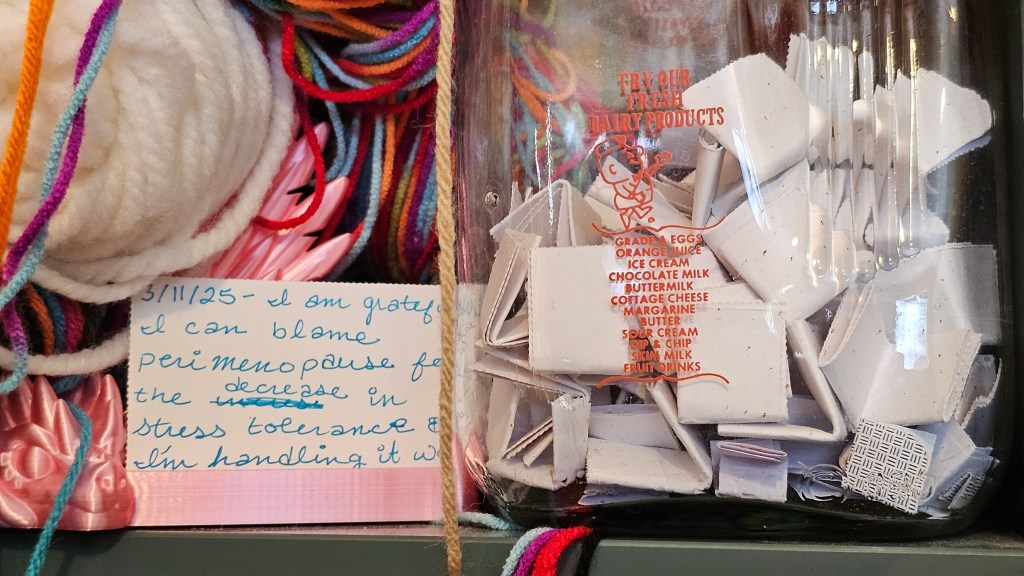 3/11/25 - I am gratef
I can blame
perimenopause
the decrease in
stress tolerance
I'm handling it
TRY OUR
FRESH
DAIRY PRODUCTS
GRADE A EGGS
ORANGE JUICE
ICE CREAM
CHOCOLATE MILK
BUTTERMILK
COTTAGE CHEESE
MARGARINE
BUTTER
SOUR CREAM
& CHIP
SKIM MILK
FRUIT DRINKS